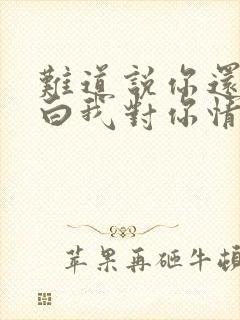 難道說你還
白我對你情
苹果再砸牛頓